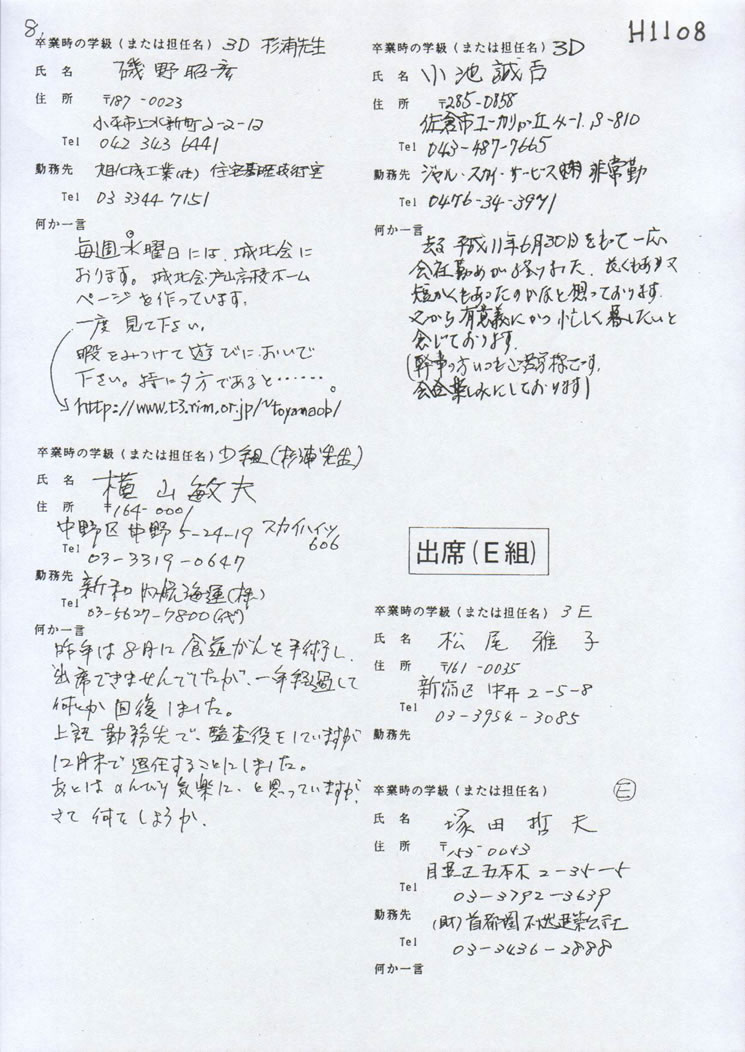 8,
H1108
卒業時の学級(または担任名) 3D 杉浦先生
氏 名 磯野昭彦
住 所 〒187-0023
小平市上水新町2-2-12
Tel 042 343 6441
勤務先 旭化成工業(株) 住宅基礎技術室
Tel 03 3344 7151
何か一言
毎週水曜日には、城北会に
おります。城北会・戸山高校ホーム
ページを作っています。
一度 見て下さい。
暇をみつけて遊びにおいで
下さい。特に夕方であると……。
http://www.t3.rim.or.jp/~toyamaob/
卒業時の学級(または担任名) D組(杉浦先生)
氏 名 横山敏夫
住 所 〒164-0001
中野区中野5-24-19 スカイハイツ
606
Tel 03-3319-0647
勤務先 新和内航海運(株)
Tel 03-5627-7800(代)
何か一言
昨年は8月に食道がんを手術し、
出席できませんでしたが、一年経過して
何とか回復しました。
上記勤務先で、監査役をしていますが
12月末で退任することにしました。
あとはのんびり気楽に、と思っていますが、
さて何をしようか.
卒業時の学級(または担任名) 3D
氏 名 小池誠吾
住 所 〒285-0858
佐倉市ユーカリが丘4-1, 3-810
Tel 043-487-7665
勤務先 ジャル・スカイ・サービス(株) 非常勤
Tel 0476-34-3971
何か一言
去る 平成11年6月30日をもって一応
会社勤めが終りました. 長くもあり又
短かくもあったのかなと想っております.
之から有意義にかつ忙しく暮したいと
念じております.
(幹事の方いつもご苦労様です.
会合楽しみにしております)
出席(E組)
卒業時の学級(または担任名) 3E
氏 名 松尾雅子
住 所 〒161-0035
新宿区中井2-5-8
Tel 03-3954-3085
勤務先
卒業時の学級(または担任名) E
氏 名 塚田哲夫
住 所 〒153-0043
目黒区 2-35-5
Tel 03-3792-3639
勤務先 (財)首都圏不燃建築公社
Tel 03-3436-2888
何か一言